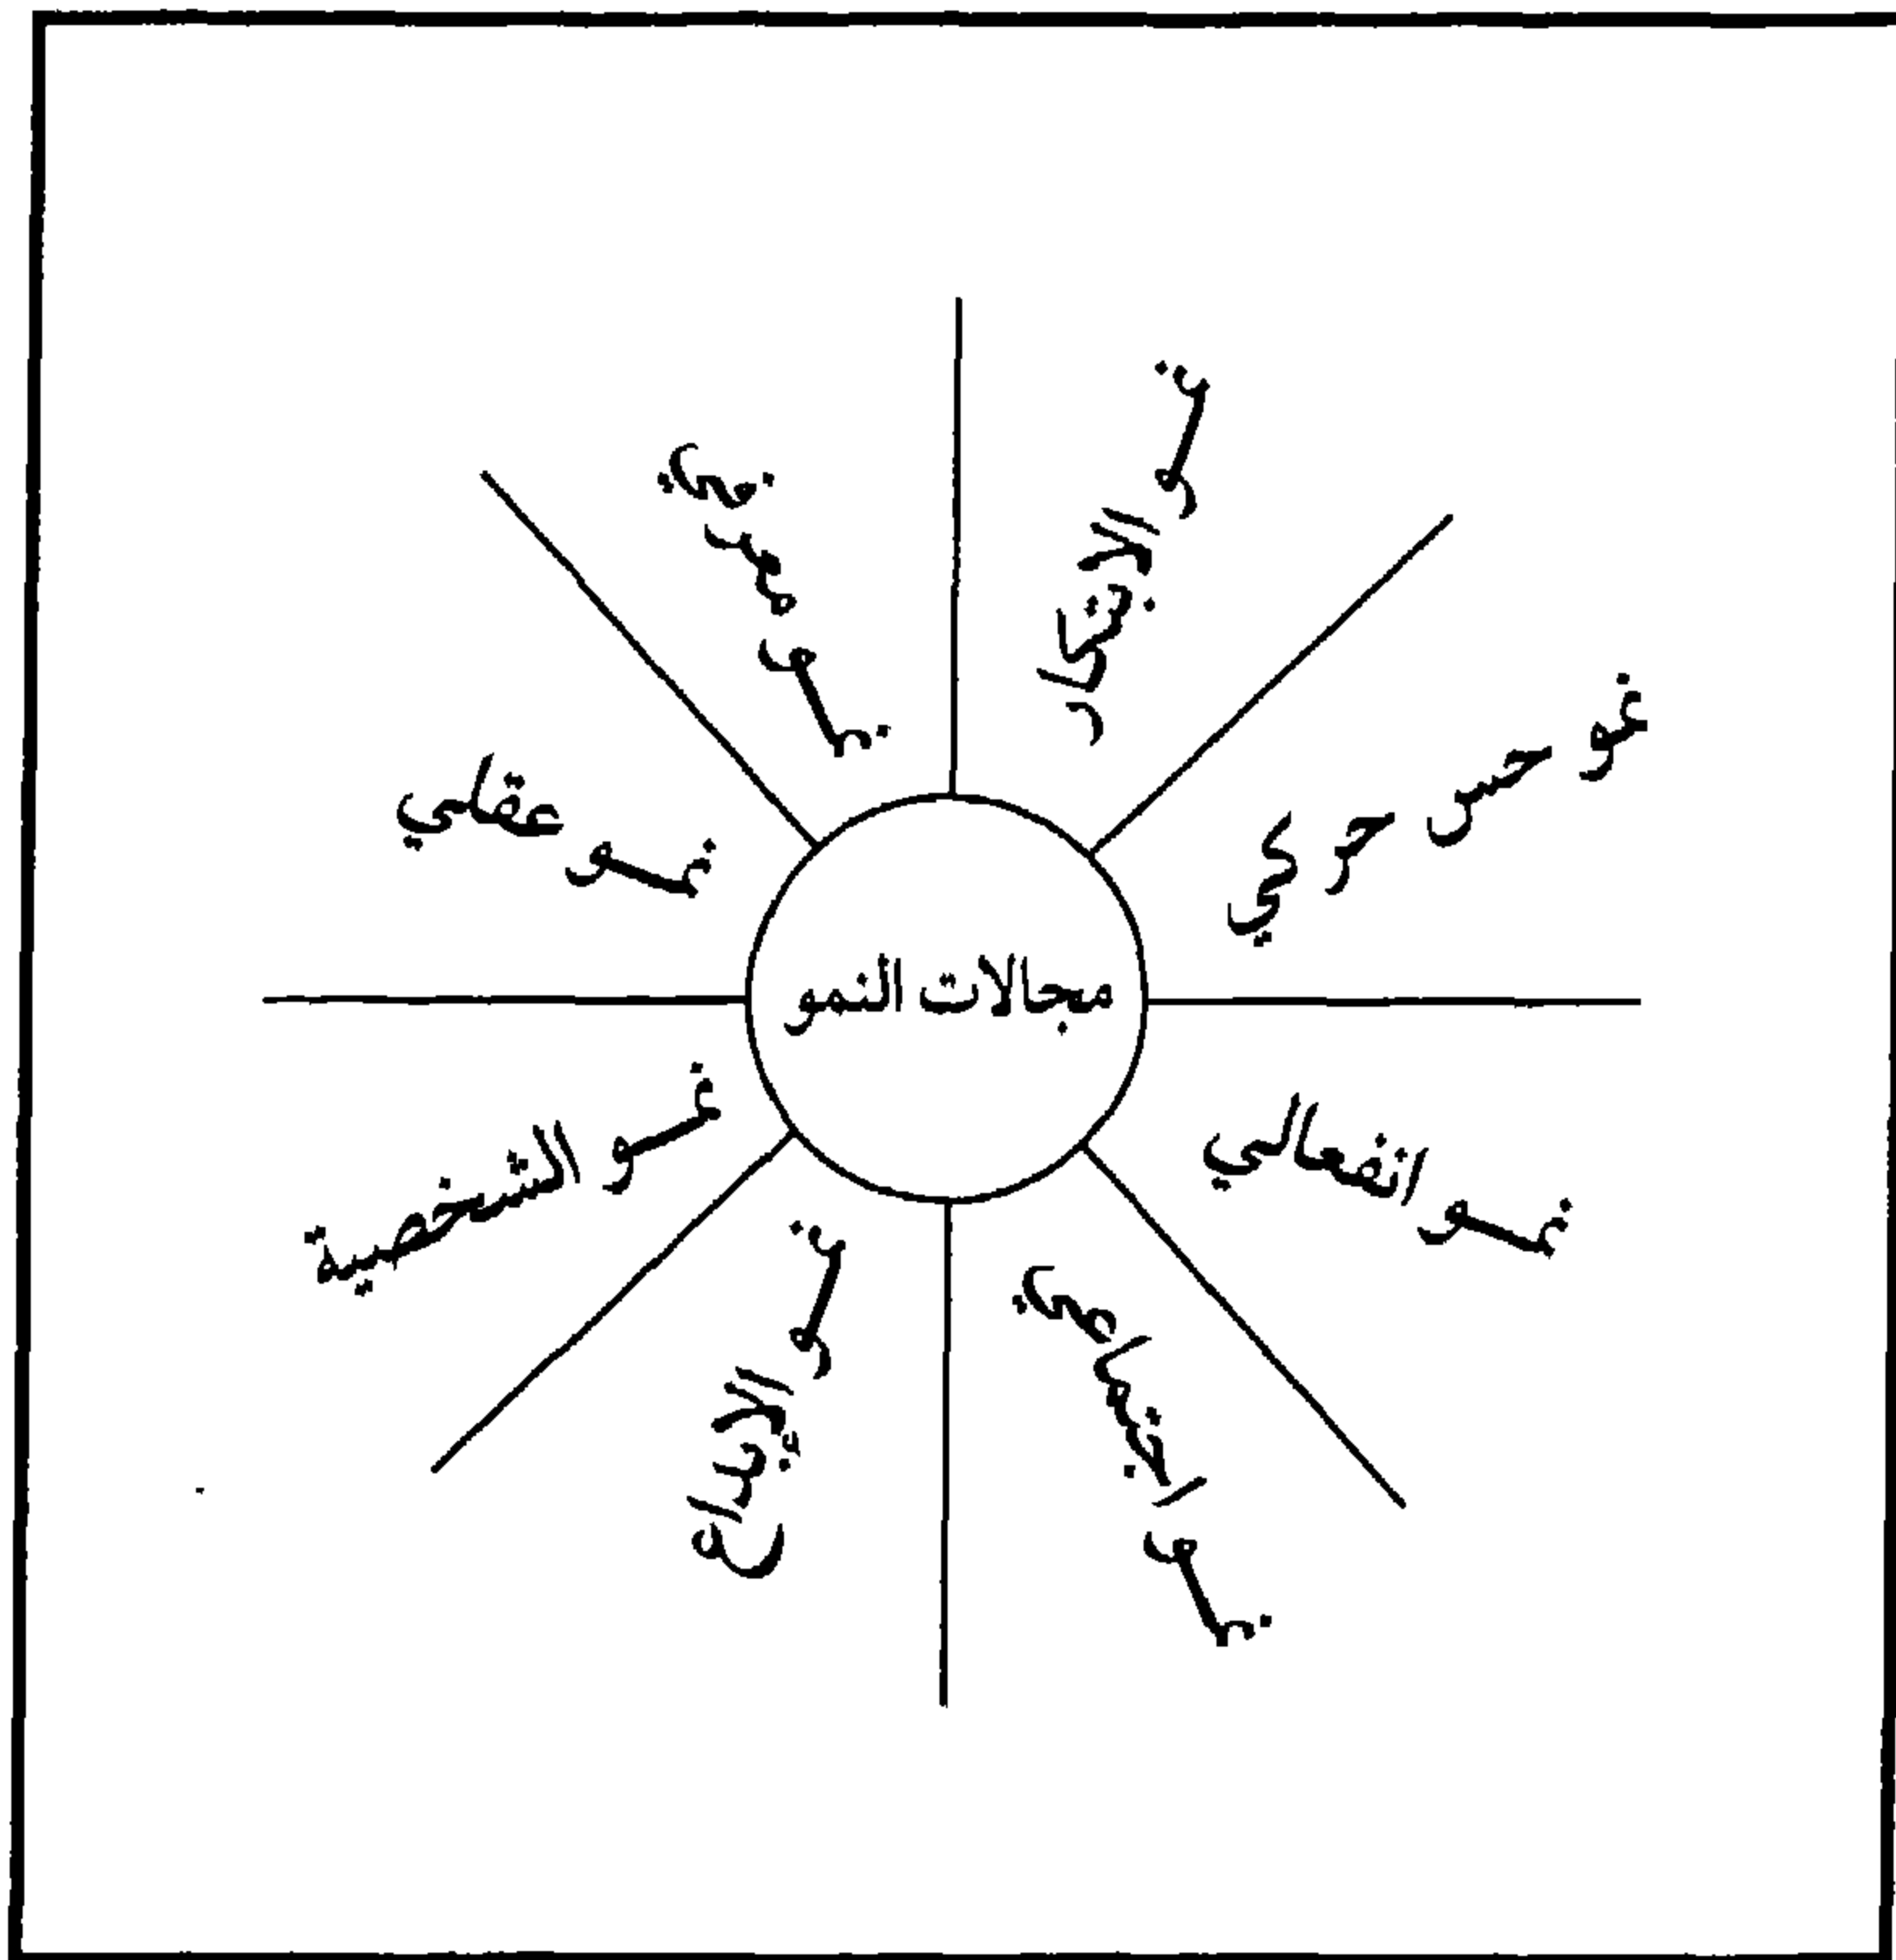 مجالات النمو
نمو الابتكار
نمو حس حركي
نمو انفعالي
نمو اجتماعي
نمو الابداع
نمو الشخصية
نمو عقلي
نمو معرفي